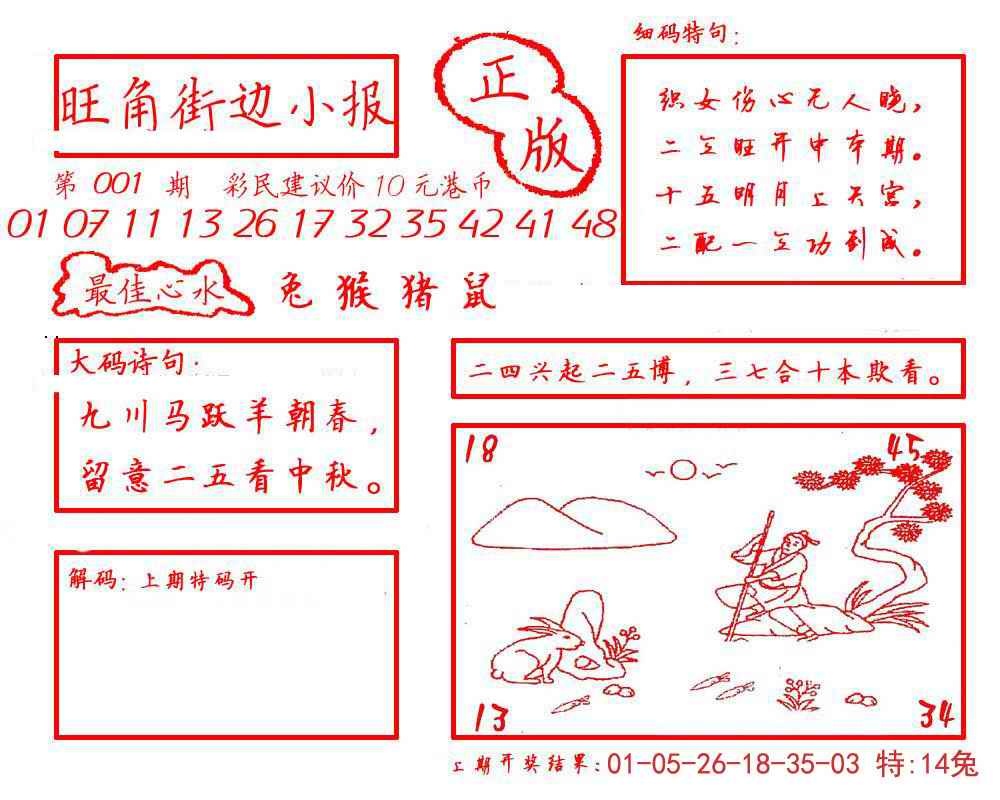 旺角街边小报
正版
第 001 期 彩民建议价 10 元港币
01 07 11 13 26 17 32 35 42 41 48
最佳心水 兔 猴 猪 鼠
细码特句：
织女伤心无人晓，
二交旺开中本期。
十五明月上天宫，
二配一交功到成。
大码诗句：
九川马跃羊朝春，
留意二五看中秋。
二四兴起二五博，三七合十本欺看。
解码：上期特码开
18 45
13 34
上期开奖结果：01-05-26-18-35-03 特:14兔